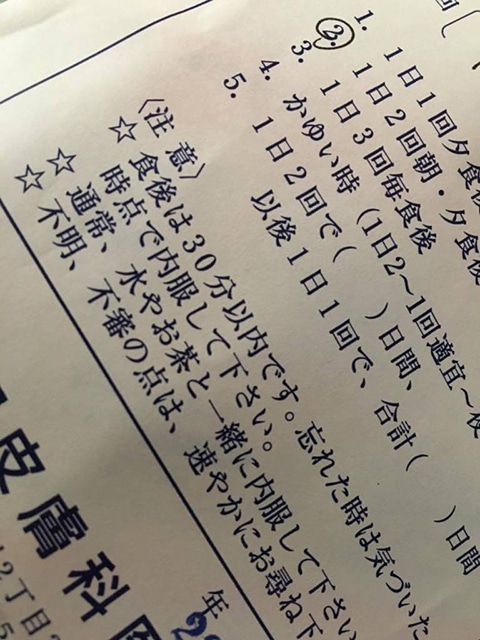 回(
1. 1日1回夕食後
2. 1日2回朝・夕食後
3. 1日3回毎食後
4. かゆい時(1日2～1回適宜～夜
5. 1日2回で( )日間、合計(
以後1日1回で、( )日間
〈注意〉
☆食後は30分以内です。忘れた時は気づいた
時点で内服して下さい。
☆通常、水やお茶と一緒に内服して下さい
☆不明、不審の点は、速やかにお尋ね下
皮膚科医
年
12丁目2